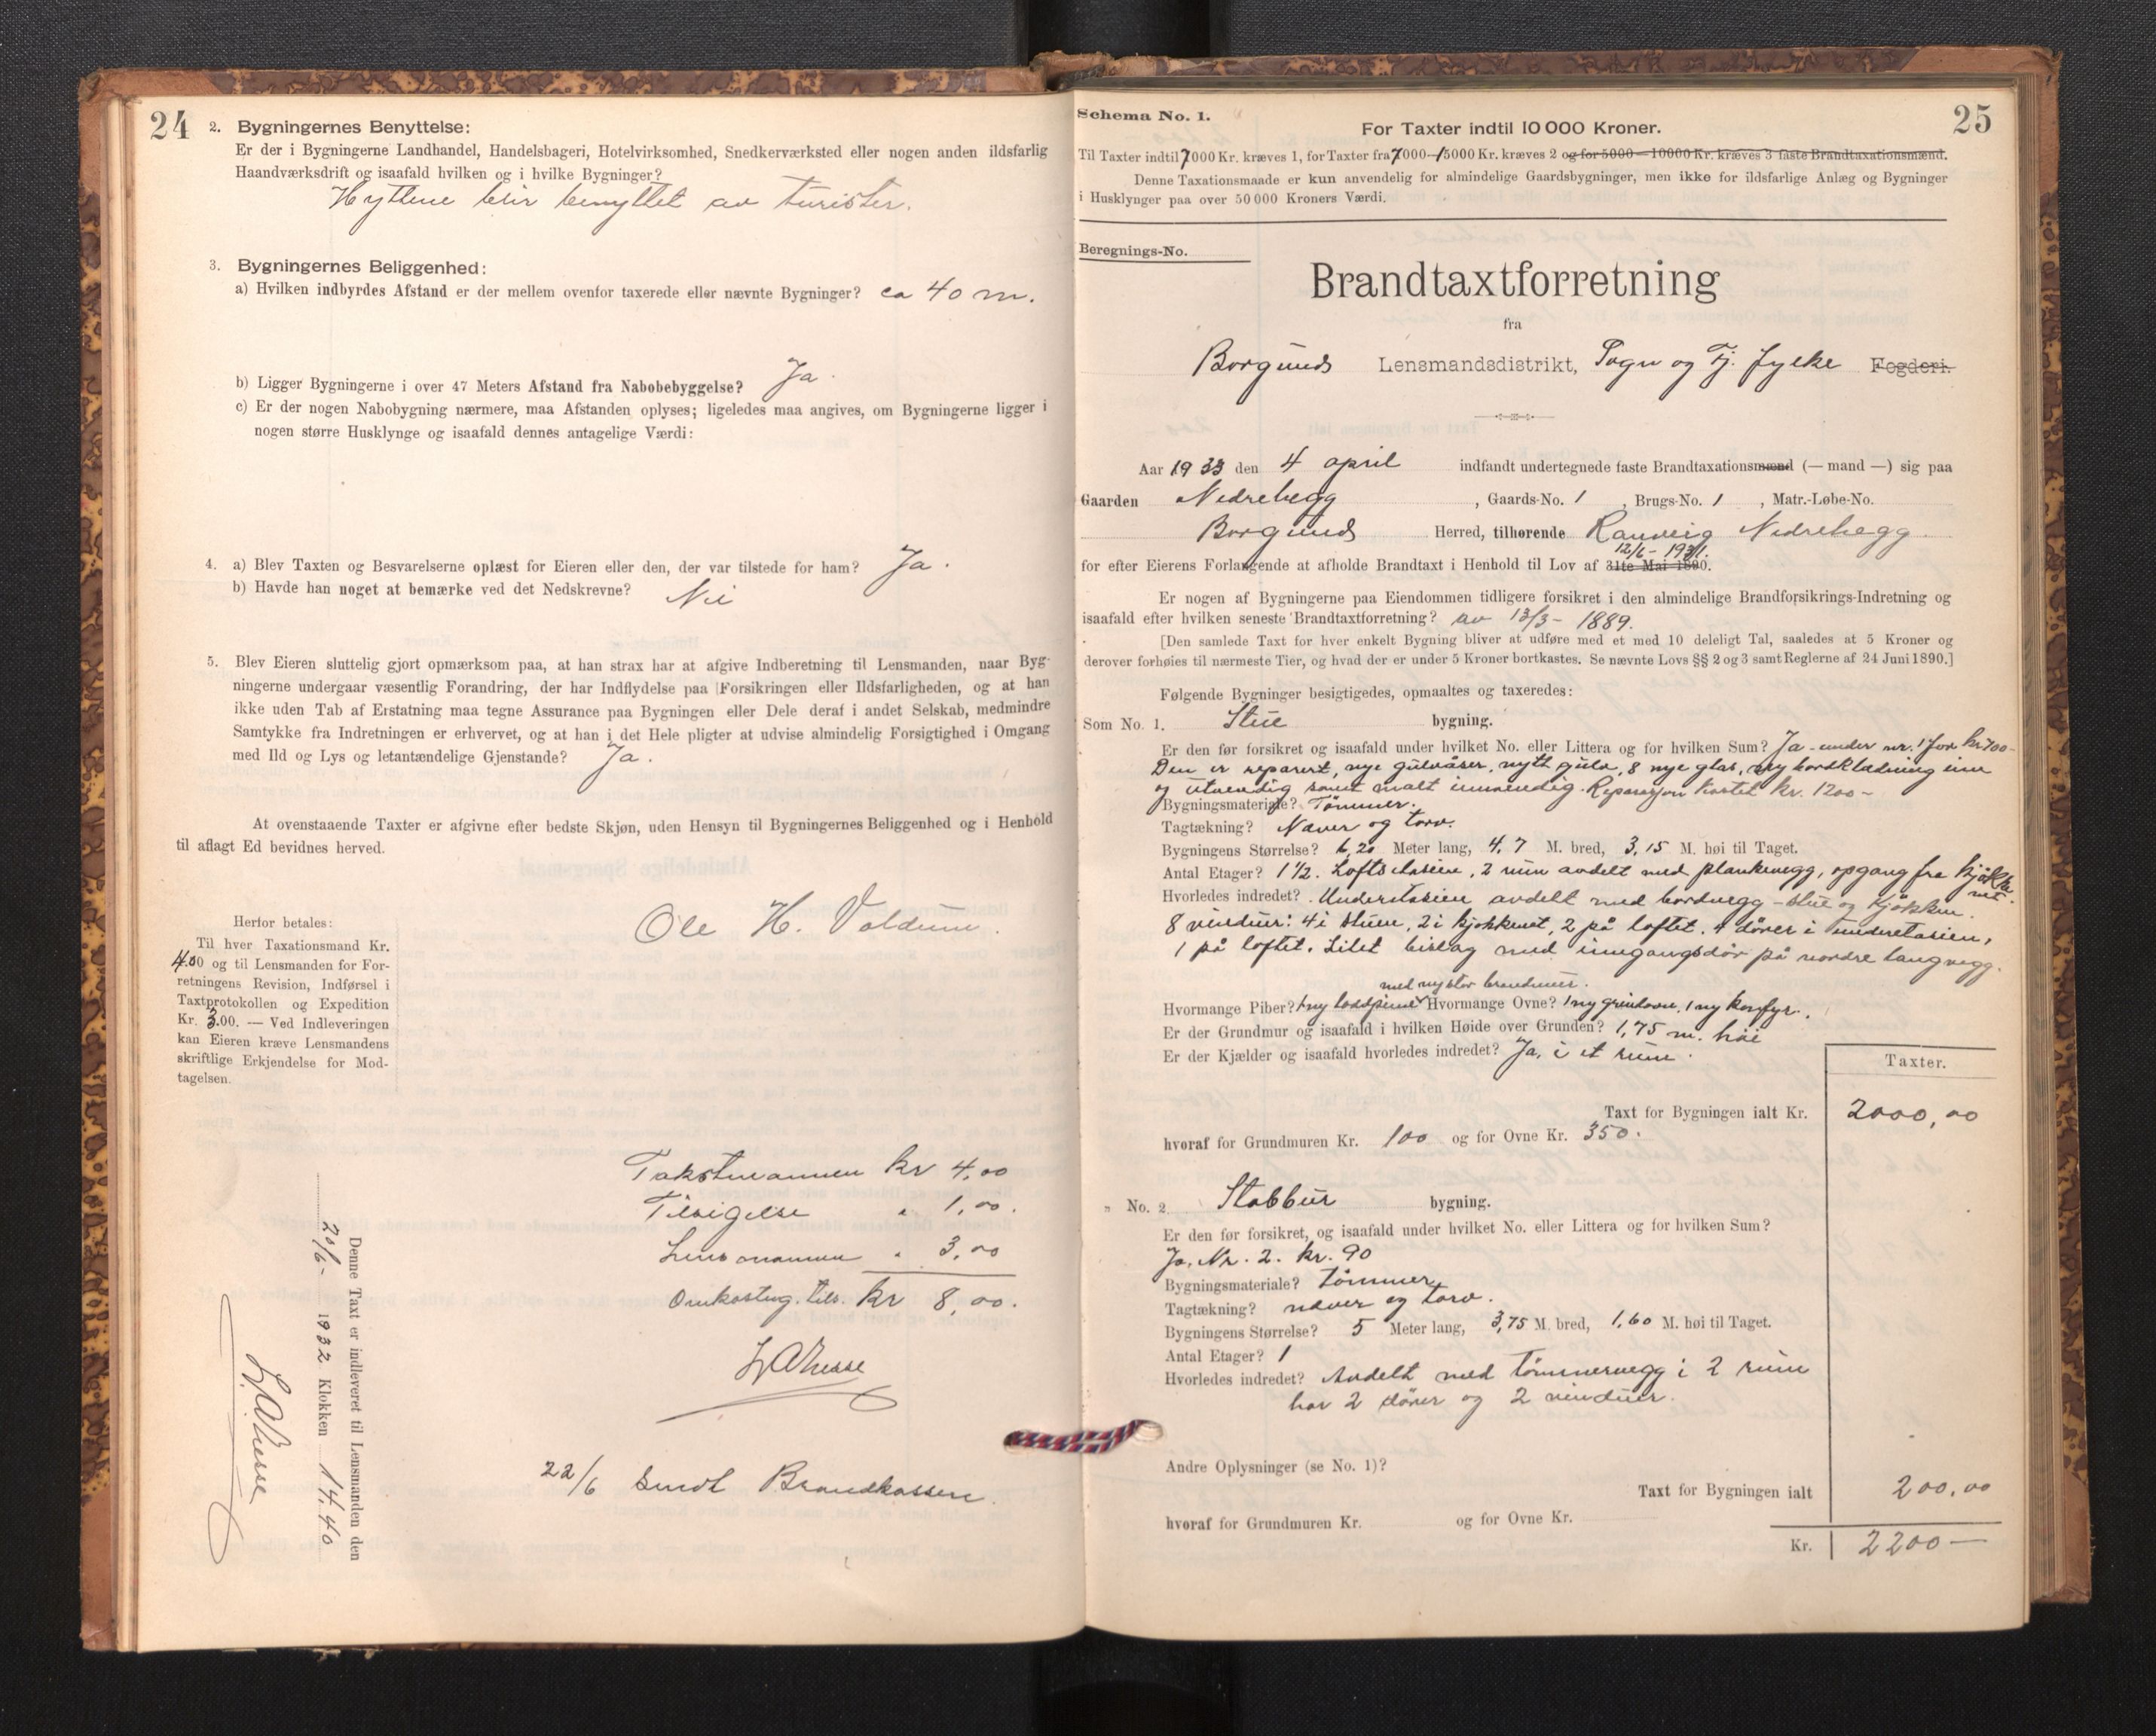 24
2. Bygningernes Benyttelse:
Er der i Bygningerne Landhandel, Handelsbageri, Hotelvirksomhed, Snedkerværksted eller nogen anden ildsfarlig
Haandværksdrift og isaafald hvilken og i hvilke Bygninger?
Hyttene blir benyttet av turister.
3. Bygningernes Beliggenhed:
a) Hvilken indbyrdes Afstand er der mellem ovenfor taxerede eller nævnte Bygninger? ca 40 m.
b) Ligger Bygningerne i over 47 Meters Afstand fra Nabobebyggelse? Ja
c) Er der nogen Nabobygning nærmere, maa Afstanden oplyses; ligeledes maa angives, om Bygningerne ligger i
nogen større Husklynge og isaafald dennes antagelige Værdi:
4. a) Blev Taxten og Besvarelserne oplæst for Eieren eller den, der var tilstede for ham? Ja.
b) Havde han noget at bemærke ved det Nedskrevne? Nei
5. Blev Eieren sluttelig gjort opmærksom paa, at han strax har at afgive Indberetning til Lensmanden, naar Byg-
ningerne undergaar væsentlig Forandring, der har Indflydelse paa Forsikringen eller Ildsfarligheden, og at han
ikke uden Tab af Erstatning maa tegne Assurance paa Bygningen eller Dele deraf i andet Selskab, medmindre
Samtykke fra Indretningen er erhvervet, og at han i det Hele pligter at udvise almindelig Forsigtighed i Omgang
med Ild og Lys og letantændelige Gjenstande? Ja.
At ovenstaaende Taxter er afgivne efter bedste Skjøn, uden Hensyn til Bygningernes Beliggenhed og i Henhold
til aflagt Ed bevidnes herved.
Ole H. Voldum.
Herfor betales:
Til hver Taxationsmand Kr.
4.00 og til Lensmanden for For-
retningens Revision, Indførsel i
Taxtprotokollen og Expedition
Kr. 3.00. — Ved Indleveringen
kan Eieren kræve Lensmandens
skriftlige Erkjendelse for Mod-
tagelsen.
Takstmannen kr 4,00
Tilsigelse " 1,00.
Lensmannen " 3,00
Omkostng. tils. kr 8,00.
22/6 sendt Brandkassen.
Denne Taxt er indleveret til Lensmanden den
20/6- 1932 Klokken 14,40
25
Schema No. 1.
For Taxter indtil 10 000 Kroner.
Til Taxter indtil 7000 Kr. kræves 1, for Taxter fra 7000—15000 Kr. kræves 2 og for 5000—10000 Kr. kræves 3 faste Brandtaxationsmænd.
Denne Taxationsmaade er kun anvendelig for almindelige Gaardsbygninger, men ikke for ildsfarlige Anlæg og Bygninger
i Husklynger paa over 50 000 Kroners Værdi.
Beregnings-No.
Brandtaxtforretning
fra
Borgunds Lensmandsdistrikt, Sogn og Fj. fylke Fogderi.
Aar 1933 den 4 april indfandt undertegnede faste Brandtaxationsmænd (— mand —) sig paa
Gaarden Nedrehegg, Gaards-No. 1, Brugs-No. 1, Matr.-Løbe-No.
Borgunds Herred, tilhørende Ranveig Nedrehegg.
12/6 - 1931.
for efter Eierens Forlangende at afholde Brandtaxt i Henhold til Lov af 31te Mai 1890.
Er nogen af Bygningerne paa Eiendommen tidligere forsikret i den almindelige Brandforsikrings-Indretning og
isaafald efter hvilken seneste Brandtaxtforretning? av 13/3 - 1889.
[Den samlede Taxt for hver enkelt Bygning bliver at udføre med et med 10 deleligt Tal, saaledes at 5 Kroner og
derover forhøies til nærmeste Tier, og hvad der er under 5 Kroner bortkastes. Se nævnte Lovs §§ 2 og 3 samt Reglerne af 24 Juni 1890.]
Følgende Bygninger besigtigedes, opmaaltes og taxeredes:
Som No. 1. Stue bygning.
Er den før forsikret og isaafald under hvilket No. eller Littera og for hvilken Sum? Ja - under nr. 1 for kr 700-
Den er reparert, nye gulvåser, nytt gulv, 8 nye glas, ny bordklædning inn
og utvendig samt malt innvendig. Reparasjon kostet kr. 1200-
Bygningsmateriale? Tømmer.
Tagtækning? Næver og torv.
Bygningens Størrelse? 6,20 Meter lang, 4,7 M. bred, 3,15 M. høi til Taget.
Antal Etager? 1½. Loftsetasien, 2 rum avdelt med plankevegg, opgang fra kjøkke
net.
Hvorledes indredet? Underetasien avdelt med bordvegg - stue og kjøkken.
8 vinduer: 4 i stuen, 2 i kjøkkenet, 2 på loftet. 4 dører i underetasien,
1 på loftet. Litet bislag med inngangsdør på nordre langvegg.
med ny stor brandmur.
Hvormange Piber? 1 ny Hvormange Ovne? 1 ny grindovn, 1 ny komfyr.
Er der Grundmur og isaafald i hvilken Høide over Grunden? 1,75 m. høi
Er der Kjælder og isaafald hvorledes indredet? Ja, i et rum.
Taxter.
Taxt for Bygningen ialt Kr. 2000,00
hvoraf for Grundmuren Kr. 100 og for Ovne Kr. 350.
" No. 2. Stabbur bygning.
Er den før forsikret, og isaafald under hvilket No. eller Littera og for hvilken Sum?
Ja, Nr. 2. kr. 90
Bygningsmateriale? tømmer
Tagtækning? næver og torv.
Bygningens Størrelse? 5 Meter lang, 3,75 M. bred, 1,60 M. høi til Taget.
Antal Etager? 1
Hvorledes indredet? Avdelt med tømmervegg i 2 rum
har 2 dører og 2 vinduer.
Andre Oplysninger (se No. 1)?
Taxt for Bygningen ialt 200,00
hvoraf for Grundmuren Kr. og for Ovne Kr.
Kr. 2200—